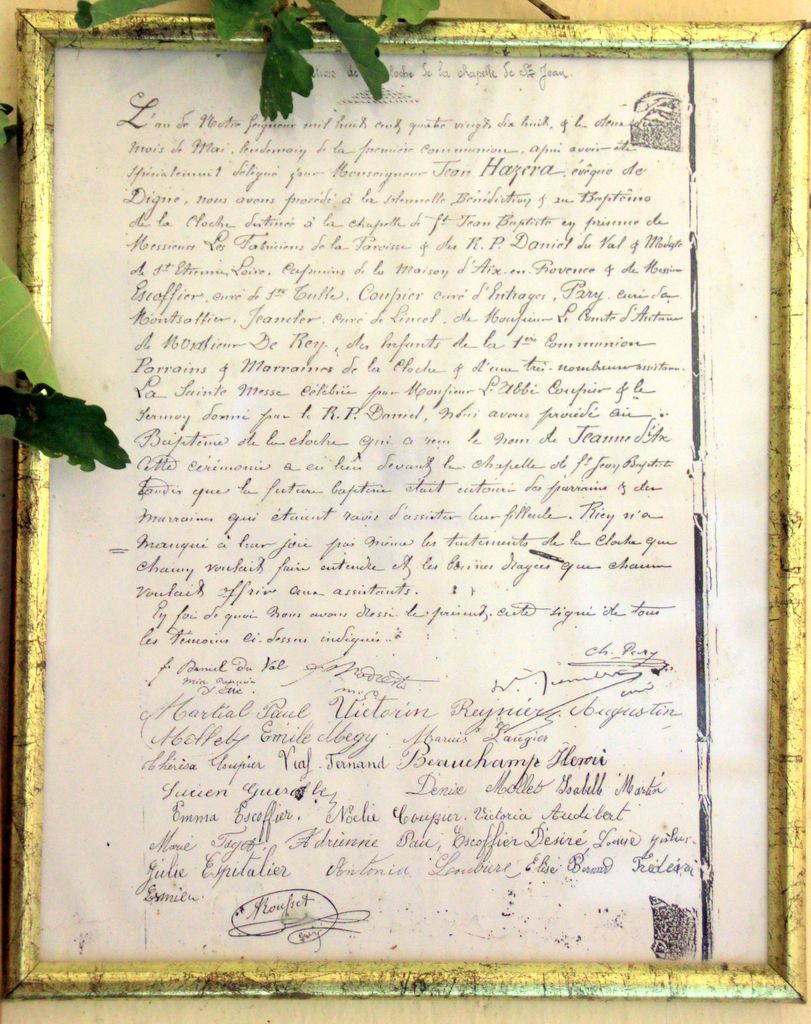 de cloche de la chapelle de St Jean.
L'an de Notre Seigneur mil huit cent quatre vingt dix huit, & le deux du
mois de Mai, lendemain de la première communion, après avoir été
spécialement délégué par Monseigneur Jean Hazera, évêque de
Digne, nous avons procédé à la solennelle Bénédiction & au Baptême
de la Cloche destinée à la chapelle de St Jean Baptiste en présence de
Messieurs Les Fabriciens de la Paroisse & des R. P. Daniel du Val & Modeste
de St Etienne Loire, Capucins de la Maison d'Aix-en-Provence & de Messieurs
Escoffier, curé de Ste Tulle, Coupier curé d'Entrages, Pary, curé de
Montsallier, Jeancler, curé de Lincel, de Monsieur Le Comte d'Autane
de Monsieur De Rey, des Enfants de la 1ère Communion
Parrains & Marraines de la cloche & d'une très-nombreuse assistance.
La Sainte Messe célébrée par Monsieur L'Abbé Coupier & le
Sermon donné par le R. P. Daniel, nous avons procédé au
Baptême de la cloche qui a reçu le nom de Jeanne d'Arc
Cette cérémonie a eu lieu devant la chapelle de St Jean Baptiste
tandis que la future baptisée était entourée des parrains & des
marraines qui étaient ravis d'assister leur filleule. Rien n'a
manqué à leur joie pas même les tintements de la cloche que
chacun voulait faire entendre et les bonnes dragées que chacun
voulait offrir aux assistants.
En foi de quoi nous avons dressé le présent acte signé de tous
les témoins ci-dessus indiqués.
f. Daniel du Val
Ch. Pary
Martial Paul Victorin Reynier Augustin
Mollet Emile Megy Marius Laugier
Thérésa Coupier Viaf Fernand Beauchamp Henri
Lucien Denise Mollet Isabelle Martin
Emma Escoffier, Noélie Coupier, Victoria Audibert
Marie Adrienne Pau, Escoffier Désiré, Louise
Julie Espitalier Antonia Elise Frédéric
Esmieu
A Rousset